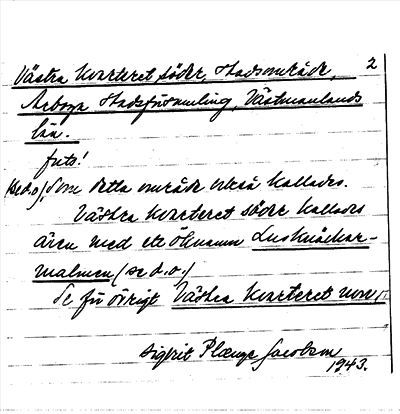 2
Västra Kvarteret söder, stadsområde,
Arboga Stadsförsamling, Västmanlands
län.
futs!
(se d.o.), som detta område också kallades.
Västra kvarteret söder kallades
även med ett öknamn Lusknäckar-
malmen (se d.o.)
Se för övrigt Västra Kvarteret norr,
Sigfrit Jacobson
1943.